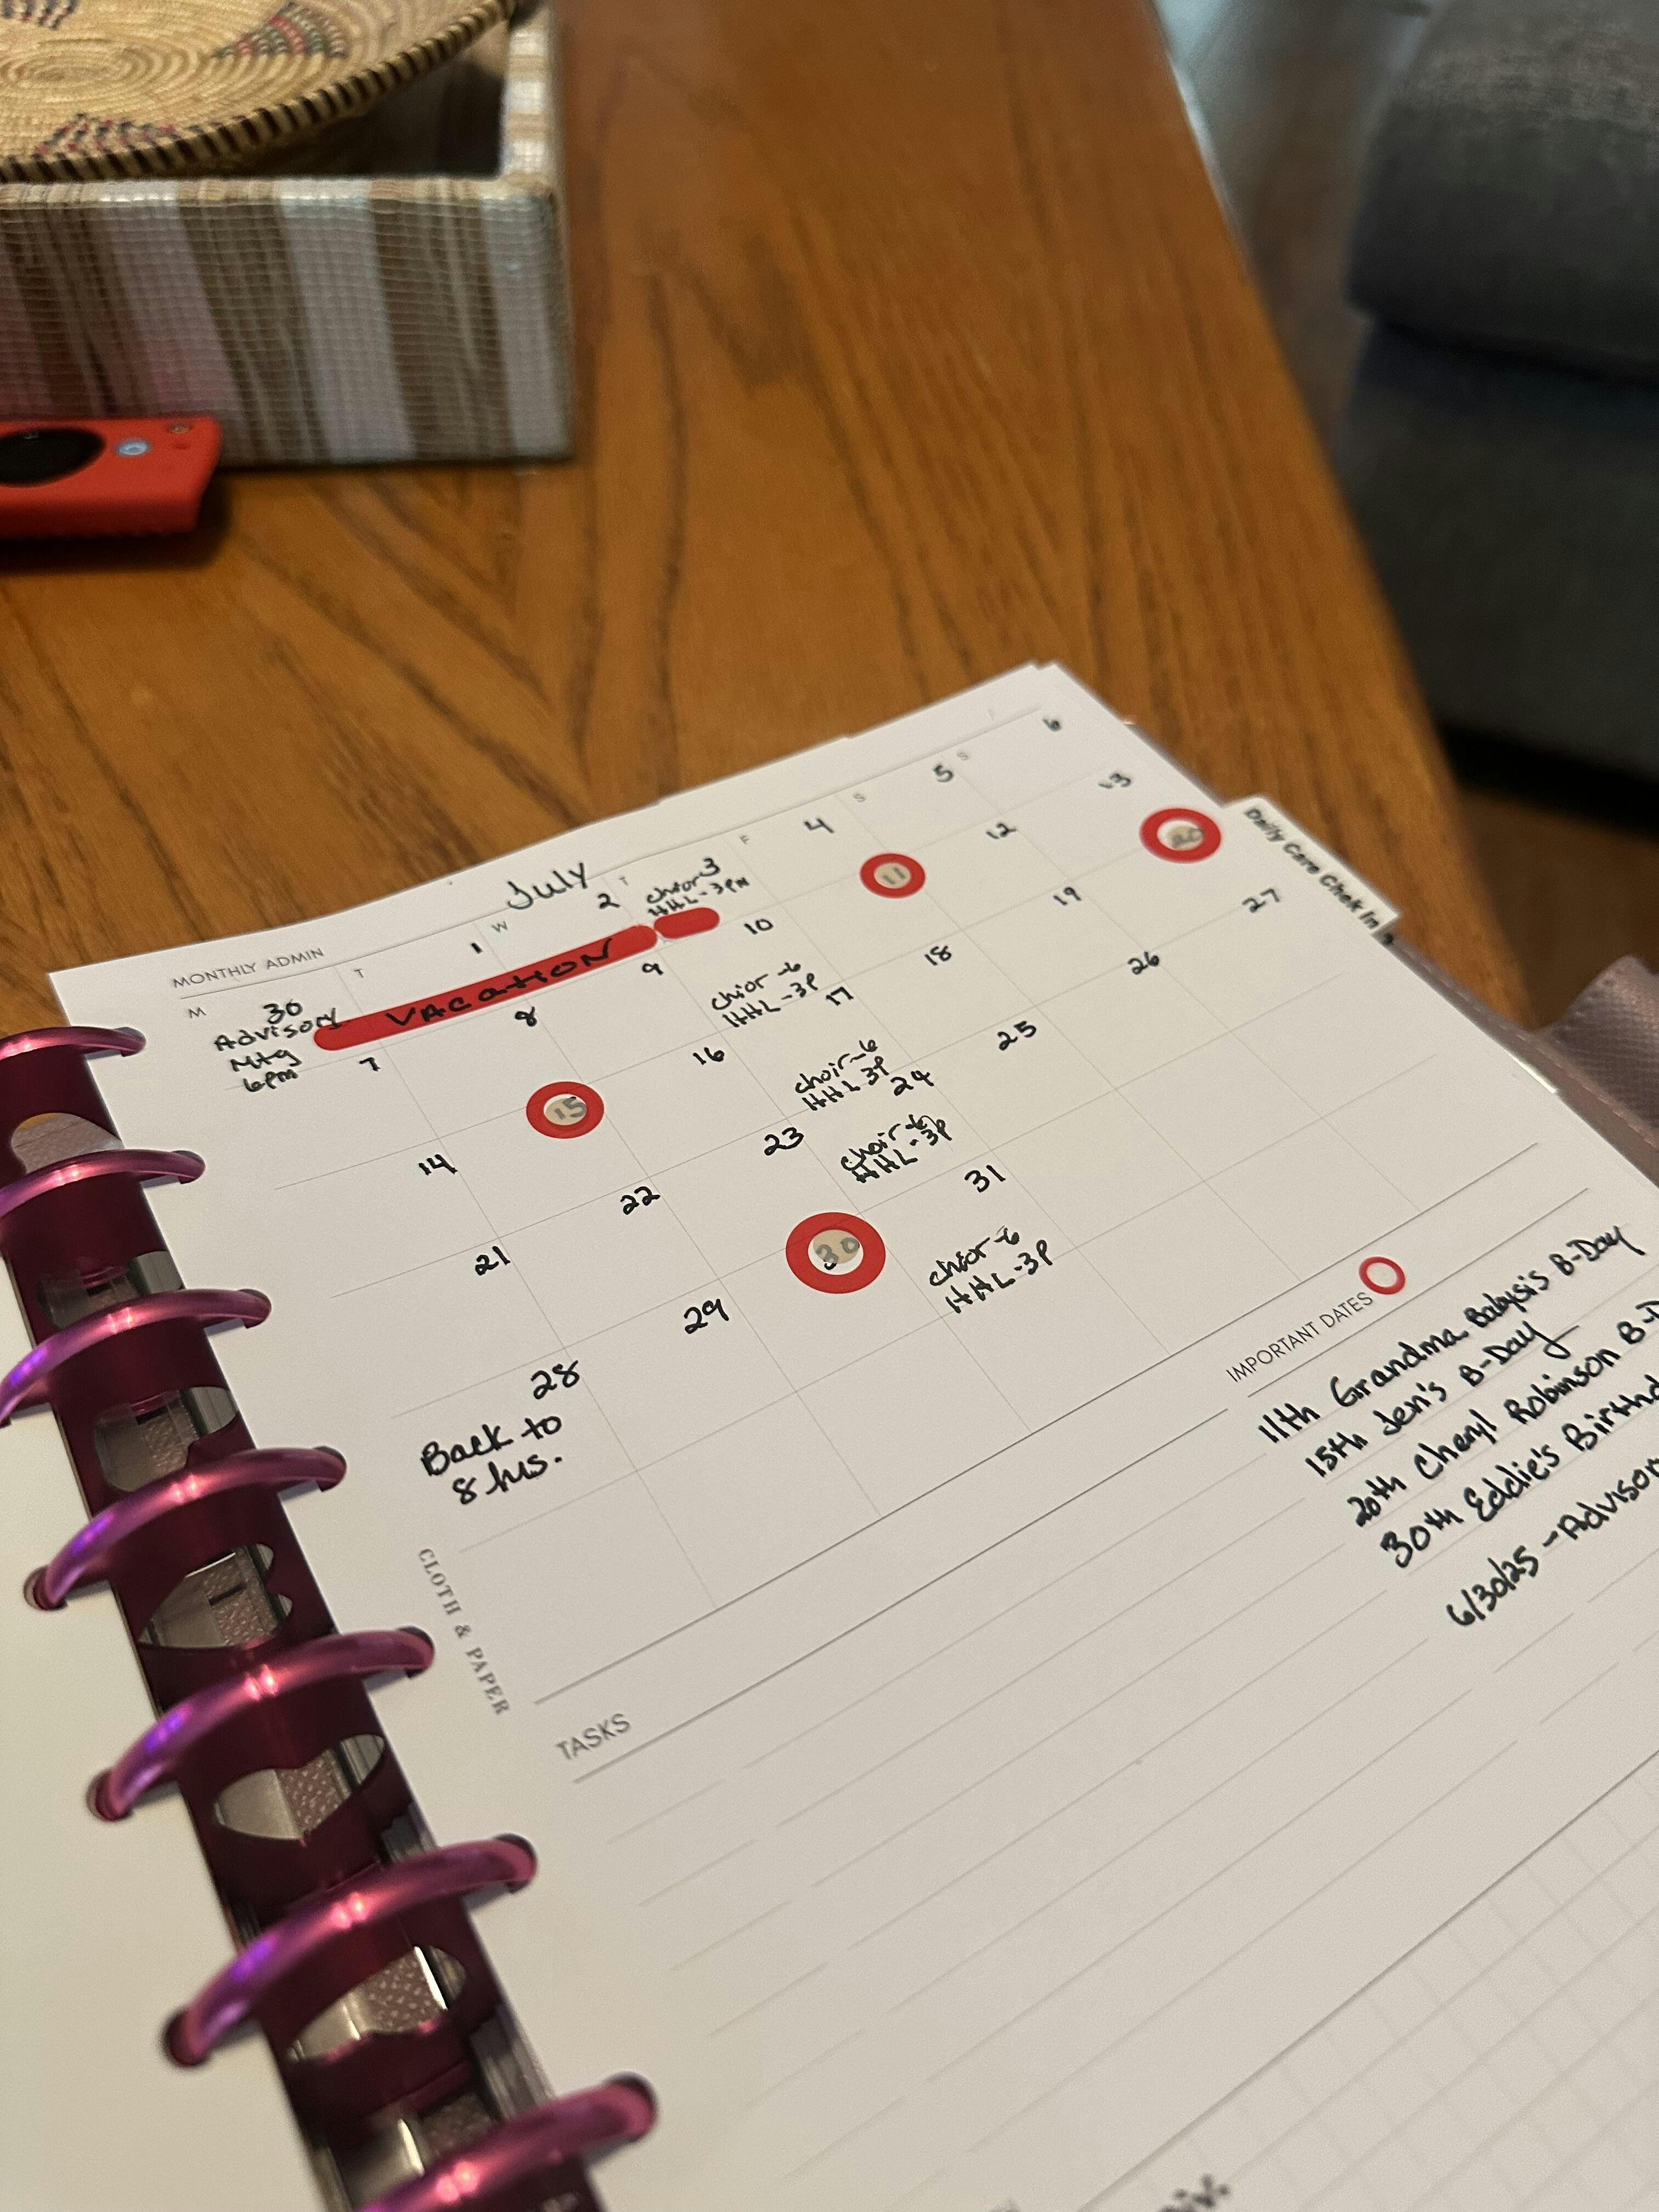 July
MONTHLY ADMIN
M T W T F S S
30 1 2 3 4 5 6
Advisory
Mtg
6pm
VACATION
chior
HHL-3PM
7 8 9 10 11 12 13
chior-6
HHL-3P
14 15 16 17 18 19 20
choir-6
HHL 3P
21 22 23 24 25 26 27
choir-6
HHL-3P
28 29 30 31
Back to
8 hrs.
chior-6
HHL-3P
Daily Care Chek In
IMPORTANT DATES
11th Grandma Babysis B-Day
15th Jen's B-Day
20th Cheryl Robinson B-D
30th Eddie's Birthd
6/30/25 - Advisor
CLOTH & PAPER
TASKS